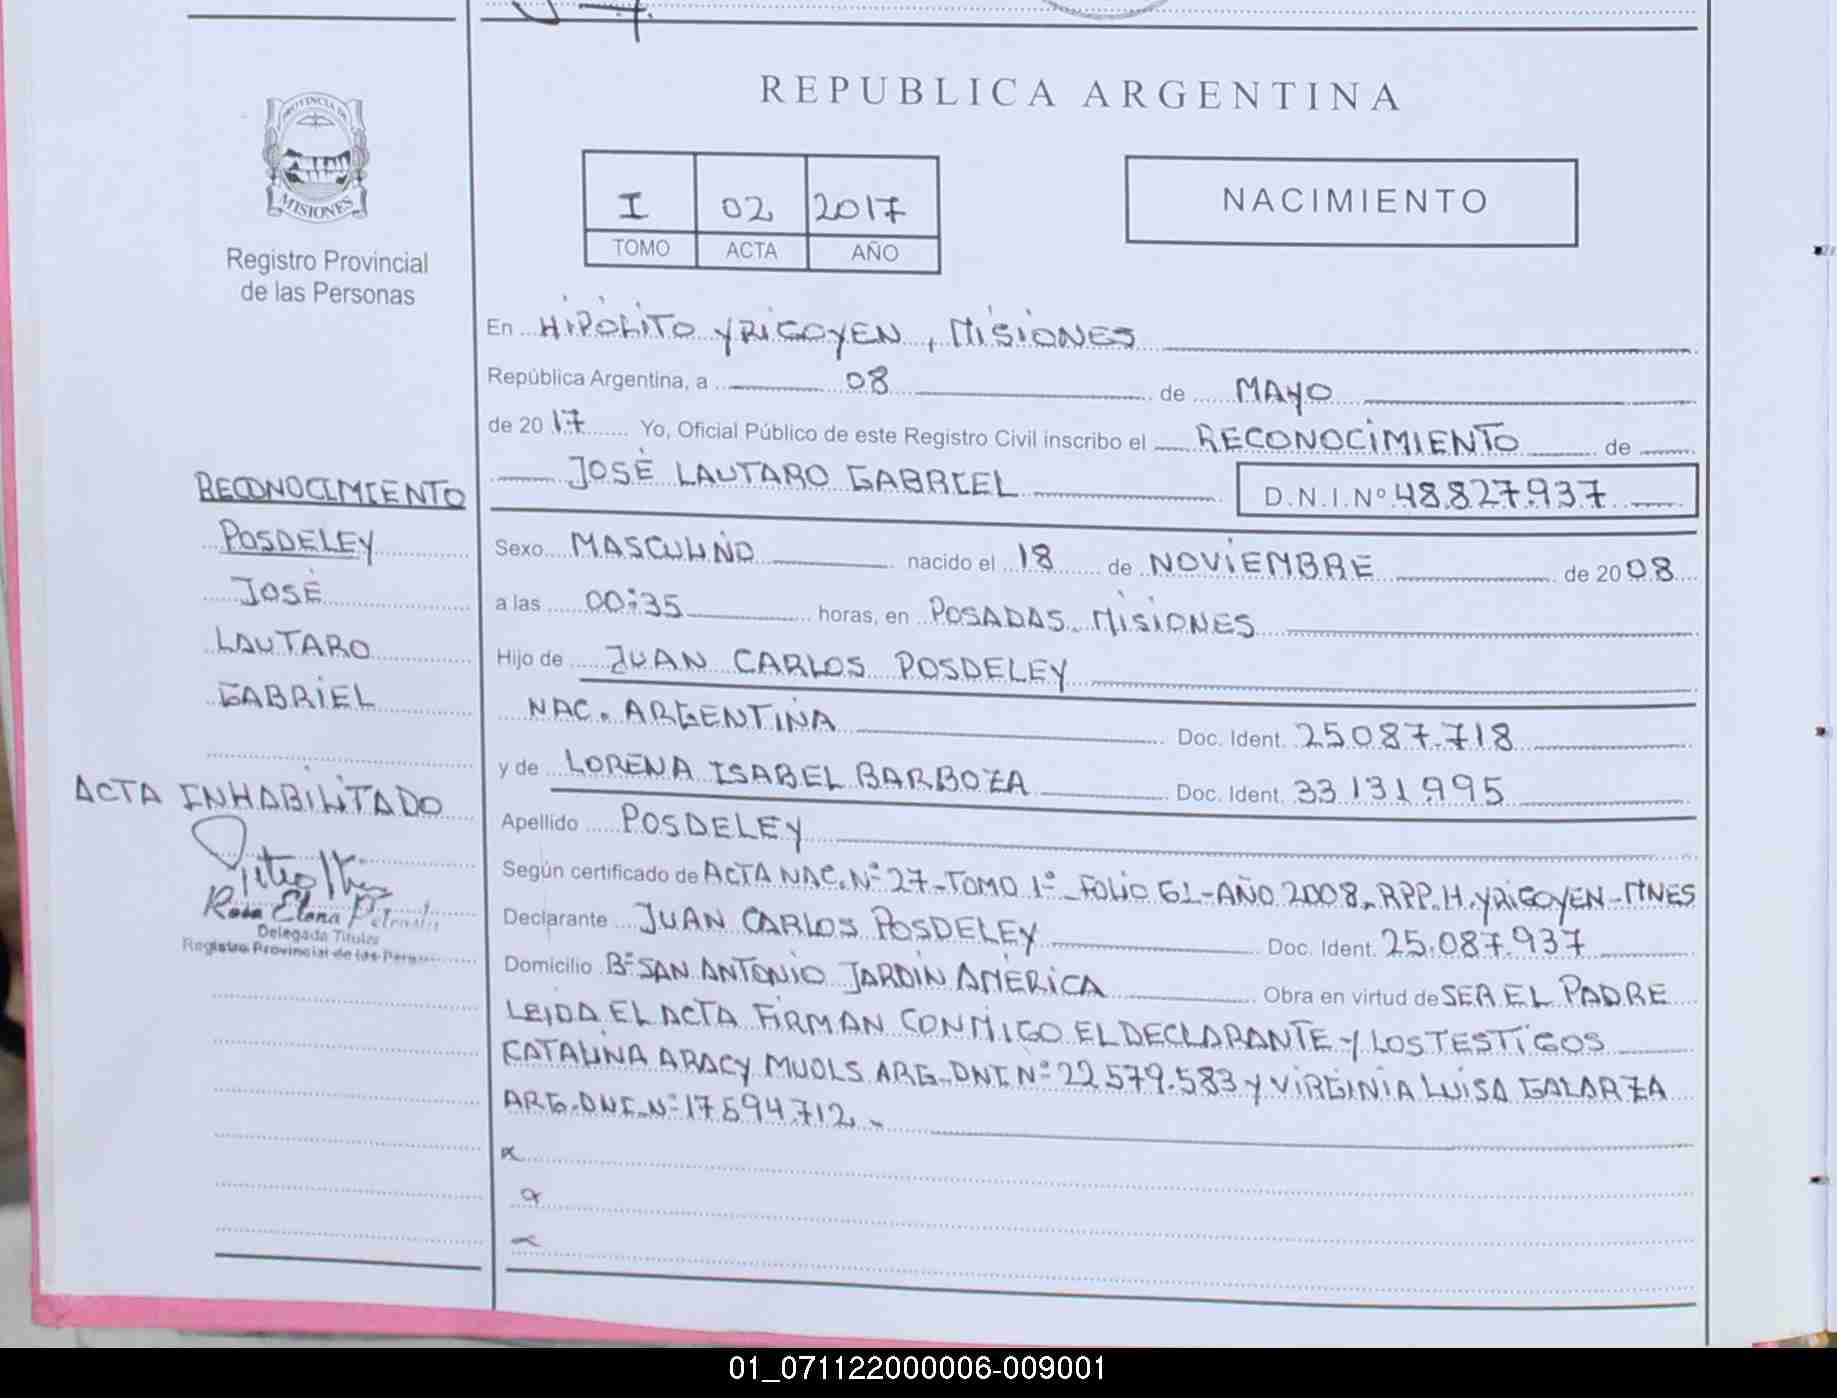 REPUBLICA ARGENTINA
PROVINCIA DE
MISIONES
Registro Provincial
de las Personas
I 02 2017
TOMO ACTA AÑO
NACIMIENTO
En HIPÓLITO YRIGOYEN, MISIONES
República Argentina, a 08 de MAYO
de 2017 Yo, Oficial Público de este Registro Civil inscribo el RECONOCIMIENTO de
JOSÉ LAUTARO GABRIEL D.N.I.Nº 48.827.937
RECONOCIMIENTO
POSDELEY
JOSÉ
LAUTARO
GABRIEL
ACTA INHABILITADO
Rosa Elena
Delegada Titular
Registro Provincial de las
Sexo MASCULINO nacido el 18 de NOVIEMBRE de 2008
a las 00:35 horas, en POSADAS. MISIONES
Hijo de JUAN CARLOS POSDELEY
NAC. ARGENTINA Doc. Ident. 25.087.718
y de LORENA ISABEL BARBOZA Doc. Ident. 33.131.995
Apellido POSDELEY
Según certificado de ACTA NAC. Nº 27-TOMO 1º-FOLIO 61-AÑO 2008. RPP. H. YRIGOYEN-MNES
Declarante JUAN CARLOS POSDELEY Doc. Ident. 25.087.937
Domicilio Bº SAN ANTONIO JARDÍN AMÉRICA Obra en virtud de SER EL PADRE
LEIDA EL ACTA FIRMAN CONMIGO EL DECLARANTE Y LOS TESTIGOS
CATALINA ARACY MUOLS ARG. DNI Nº 22.579.583 Y VIRGINIA LUISA GALARZA
ARG. DNI. Nº 17.594.712.-
01_071122000006-009001